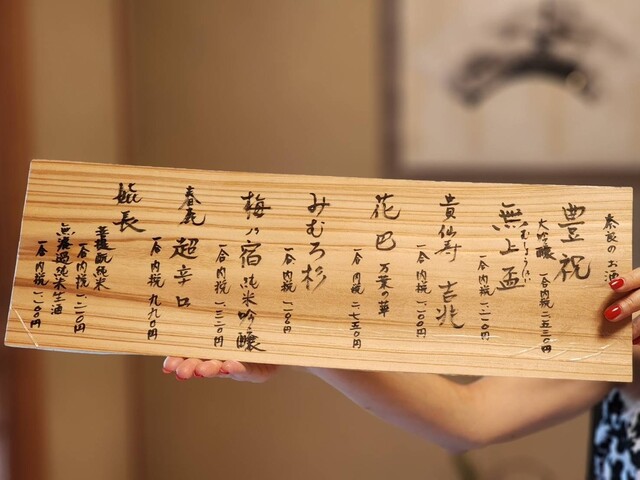 奈良のお酒
豊祝
大吟醸
一合内税 二五三〇円
無上盃
むじょうはい
一合内税
貴仙寿 吉兆
一合内税 一一〇〇円
花巴 万葉の華
一合内税 二七五〇円
みむろ杉
一合内税 一一〇〇円
梅乃宿 純米吟醸
一合内税 一三二〇円
春鹿 超辛口
一合内税 九九〇円
長
菩提酛純米
一合内税
無濾過純米生酒
一合内税